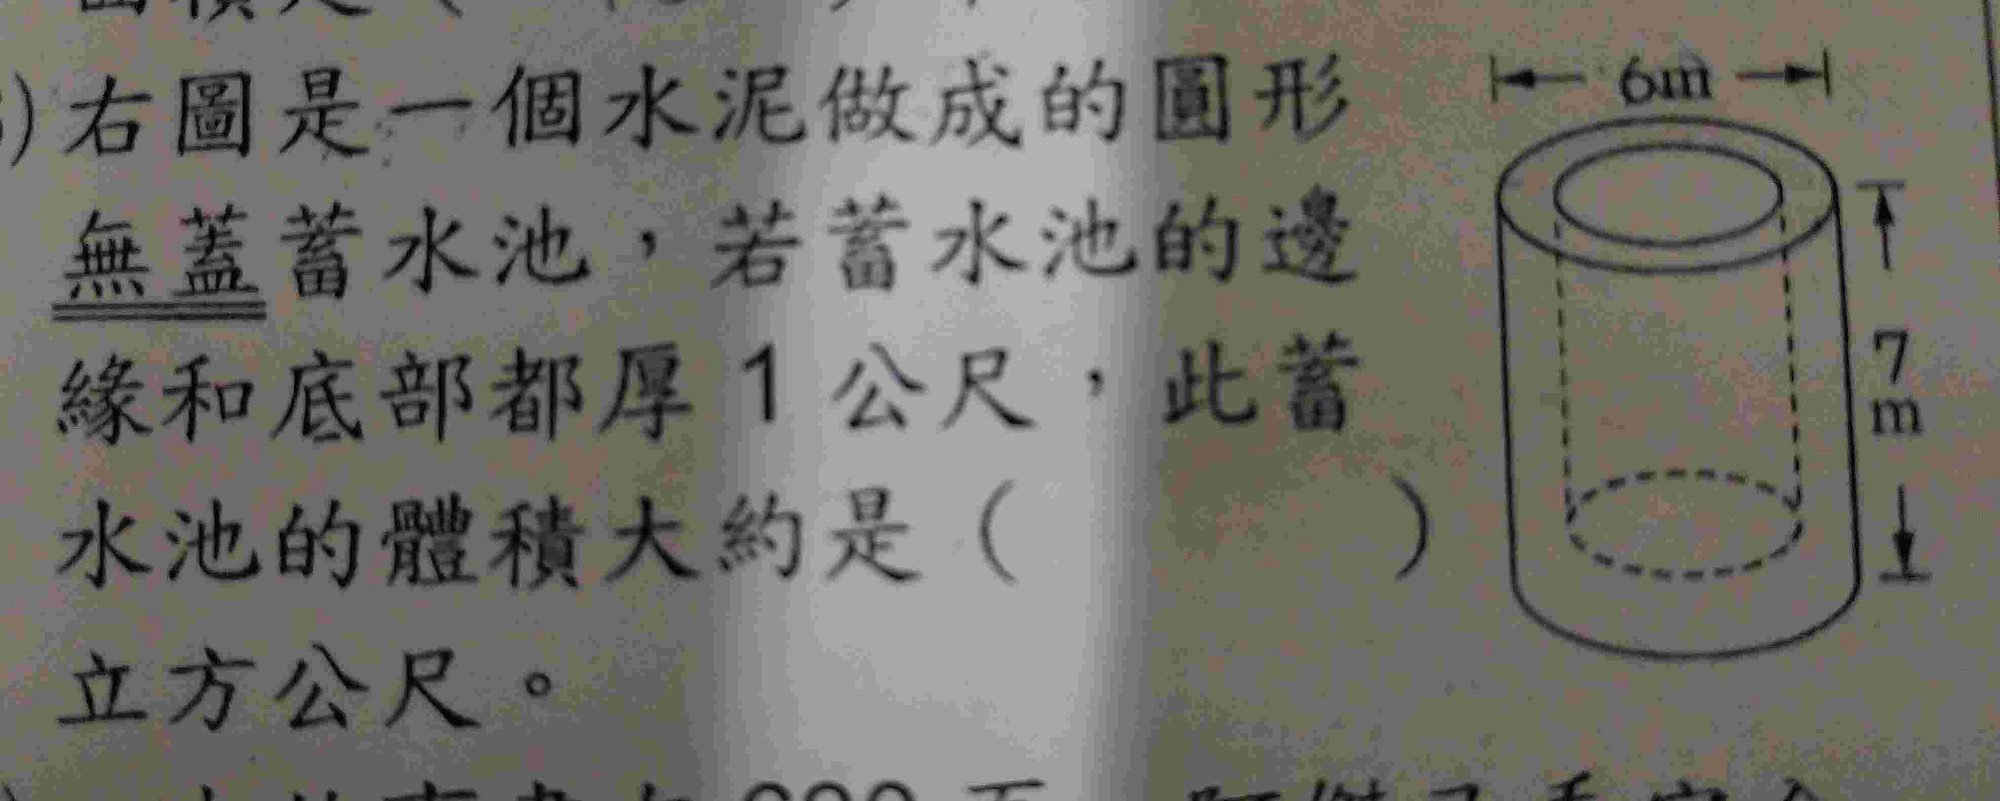 )右圖是一個水泥做成的圓形
6m
無蓋蓄水池，若蓄水池的邊
緣和底部都厚1公尺，此蓄
7
m
水池的體積大約是（　　　）
立方公尺。